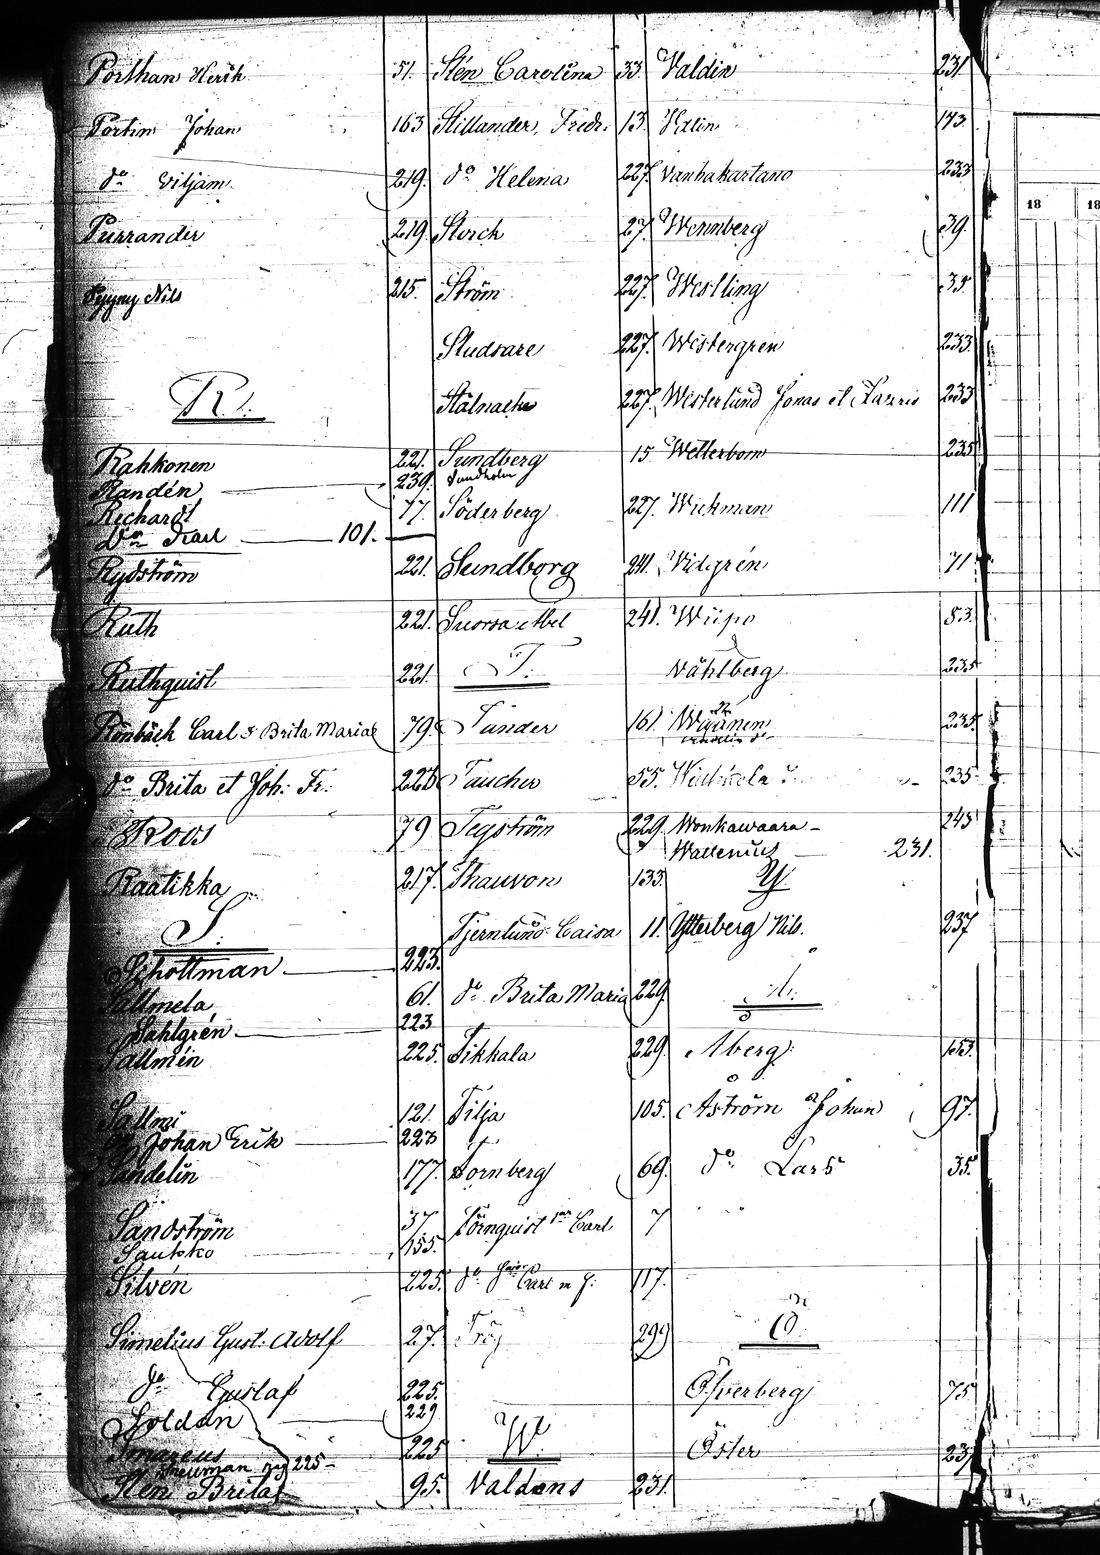 Porthan Henrik 51.
Portin Johan 163
do Viljam. 219.
Purrander 219.
Pyyny Nils 215.
R.
Rahkonen 221.
Randén 239.
Richardt 77.
do Karl 101.
Rydström 221.
Ruth 221.
Ruthquist 221.
Rönbäck Carl & Brita Maria 79.
do Brita et Joh: Fr: 223
Roos 79
Raatikka 217.
S.
Schottman 223.
Sallmela 61.
Sahlgrén 223
Sallmén 225.
Sallmi 121.
do Johan Erik 223
Sandelin 177.
Sandström 37
Saukko 155.
Silvén 225.
Simelius Gust: Adolf 27.
do Gustaf 225.
Soldan 229
Smareus 225
Sneuman 225
Stén Brita 95.
Stén Carolina 33.
Stillander, Fredr. 13.
do Helena 227.
Storch 27.
Ström 227.
Studsare 227.
Stålnacke 227.
Sundberg 15
Sundholm
Söderberg 227.
Sundborg 241.
Suorsa Abel 241.
T.
Tander 161.
Taucher 55.
Tegström 229.
Thauvon 133.
Tjernlund Caisa 11.
do Brita Maria 229.
Tikkala 229.
Tilja 105.
Tornberg 69.
Törnquist Carl 7
do Carl m f: 117.
Tröj 299
W.
Valdans 231.
Valdin 231.
Valin 173.
Vanhakartano 233
Wennberg 39.
Westling 35.
Westergren 233
Westerlund Jonas et Karris 233
Wetterbom 235
Wickman 111
Vidgrén 71
Wiipo 83.
Våhlberg 235
Wäänen 235.
235.
Wonkawaara 245
Wallenius 231.
Y.
Ytterberg Nils. 237
Å.
Åberg 153.
Åström Johan 97.
do Lars 35.
Ö.
Öfverberg 75
Öster 237
18
18